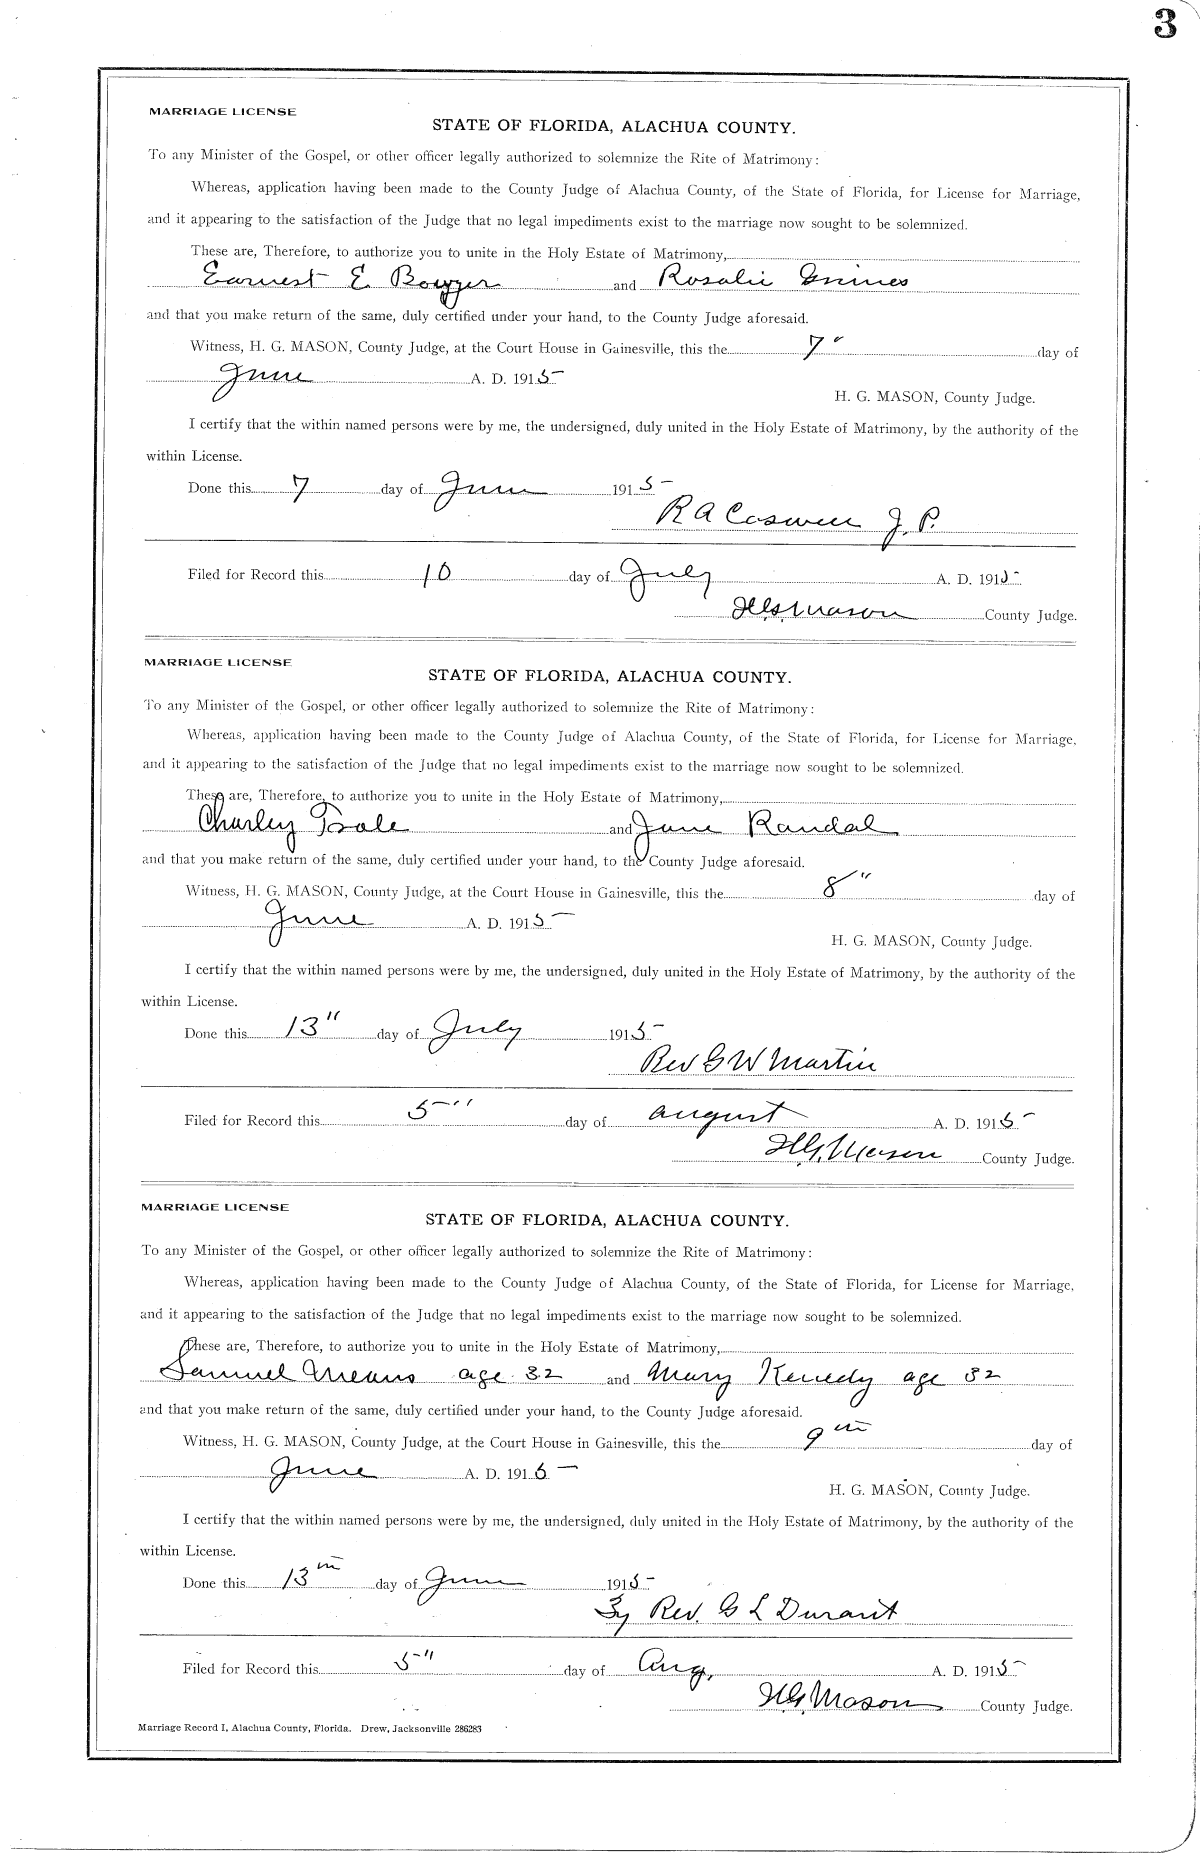 3
MARRIAGE LICENSE
STATE OF FLORIDA, ALACHUA COUNTY.
To any Minister of the Gospel, or other officer legally authorized to solemnize the Rite of Matrimony:
Whereas, application having been made to the County Judge of Alachua County, of the State of Florida, for License for Marriage,
and it appearing to the satisfaction of the Judge that no legal impediments exist to the marriage now sought to be solemnized.
These are, Therefore, to authorize you to unite in the Holy Estate of Matrimony,
Earnest E and Rosalie Grimes
and that you make return of the same, duly certified under your hand, to the County Judge aforesaid.
Witness, H. G. MASON, County Judge, at the Court House in Gainesville, this the 7" day of
June A. D. 1915
H. G. MASON, County Judge.
I certify that the within named persons were by me, the undersigned, duly united in the Holy Estate of Matrimony, by the authority of the
within License.
Done this 7 day of June 1915
R A J. P.
Filed for Record this 10 day of July A. D. 1915
H.G. Mason County Judge.
MARRIAGE LICENSE
STATE OF FLORIDA, ALACHUA COUNTY.
To any Minister of the Gospel, or other officer legally authorized to solemnize the Rite of Matrimony:
Whereas, application having been made to the County Judge of Alachua County, of the State of Florida, for License for Marriage,
and it appearing to the satisfaction of the Judge that no legal impediments exist to the marriage now sought to be solemnized.
These are, Therefore, to authorize you to unite in the Holy Estate of Matrimony,
Charley and Jane Randal
and that you make return of the same, duly certified under your hand, to the County Judge aforesaid.
Witness, H. G. MASON, County Judge, at the Court House in Gainesville, this the 8" day of
June A. D. 1915
H. G. MASON, County Judge.
I certify that the within named persons were by me, the undersigned, duly united in the Holy Estate of Matrimony, by the authority of the
within License.
Done this 13" day of July 1915
Rev G W Martin
Filed for Record this 5" day of august A. D. 1915
H.G. Mason County Judge.
MARRIAGE LICENSE
STATE OF FLORIDA, ALACHUA COUNTY.
To any Minister of the Gospel, or other officer legally authorized to solemnize the Rite of Matrimony:
Whereas, application having been made to the County Judge of Alachua County, of the State of Florida, for License for Marriage,
and it appearing to the satisfaction of the Judge that no legal impediments exist to the marriage now sought to be solemnized.
These are, Therefore, to authorize you to unite in the Holy Estate of Matrimony,
Samuel Means age 32 and Mary Kenedy age 32
and that you make return of the same, duly certified under your hand, to the County Judge aforesaid.
Witness, H. G. MASON, County Judge, at the Court House in Gainesville, this the 9th day of
June A. D. 1915
H. G. MASON, County Judge.
I certify that the within named persons were by me, the undersigned, duly united in the Holy Estate of Matrimony, by the authority of the
within License.
Done this 13th day of June 1915
By Rev. G L Durant
Filed for Record this 5" day of Aug. A. D. 1915
H.G. Mason County Judge.
Marriage Record I, Alachua County, Florida. Drew, Jacksonville 286283